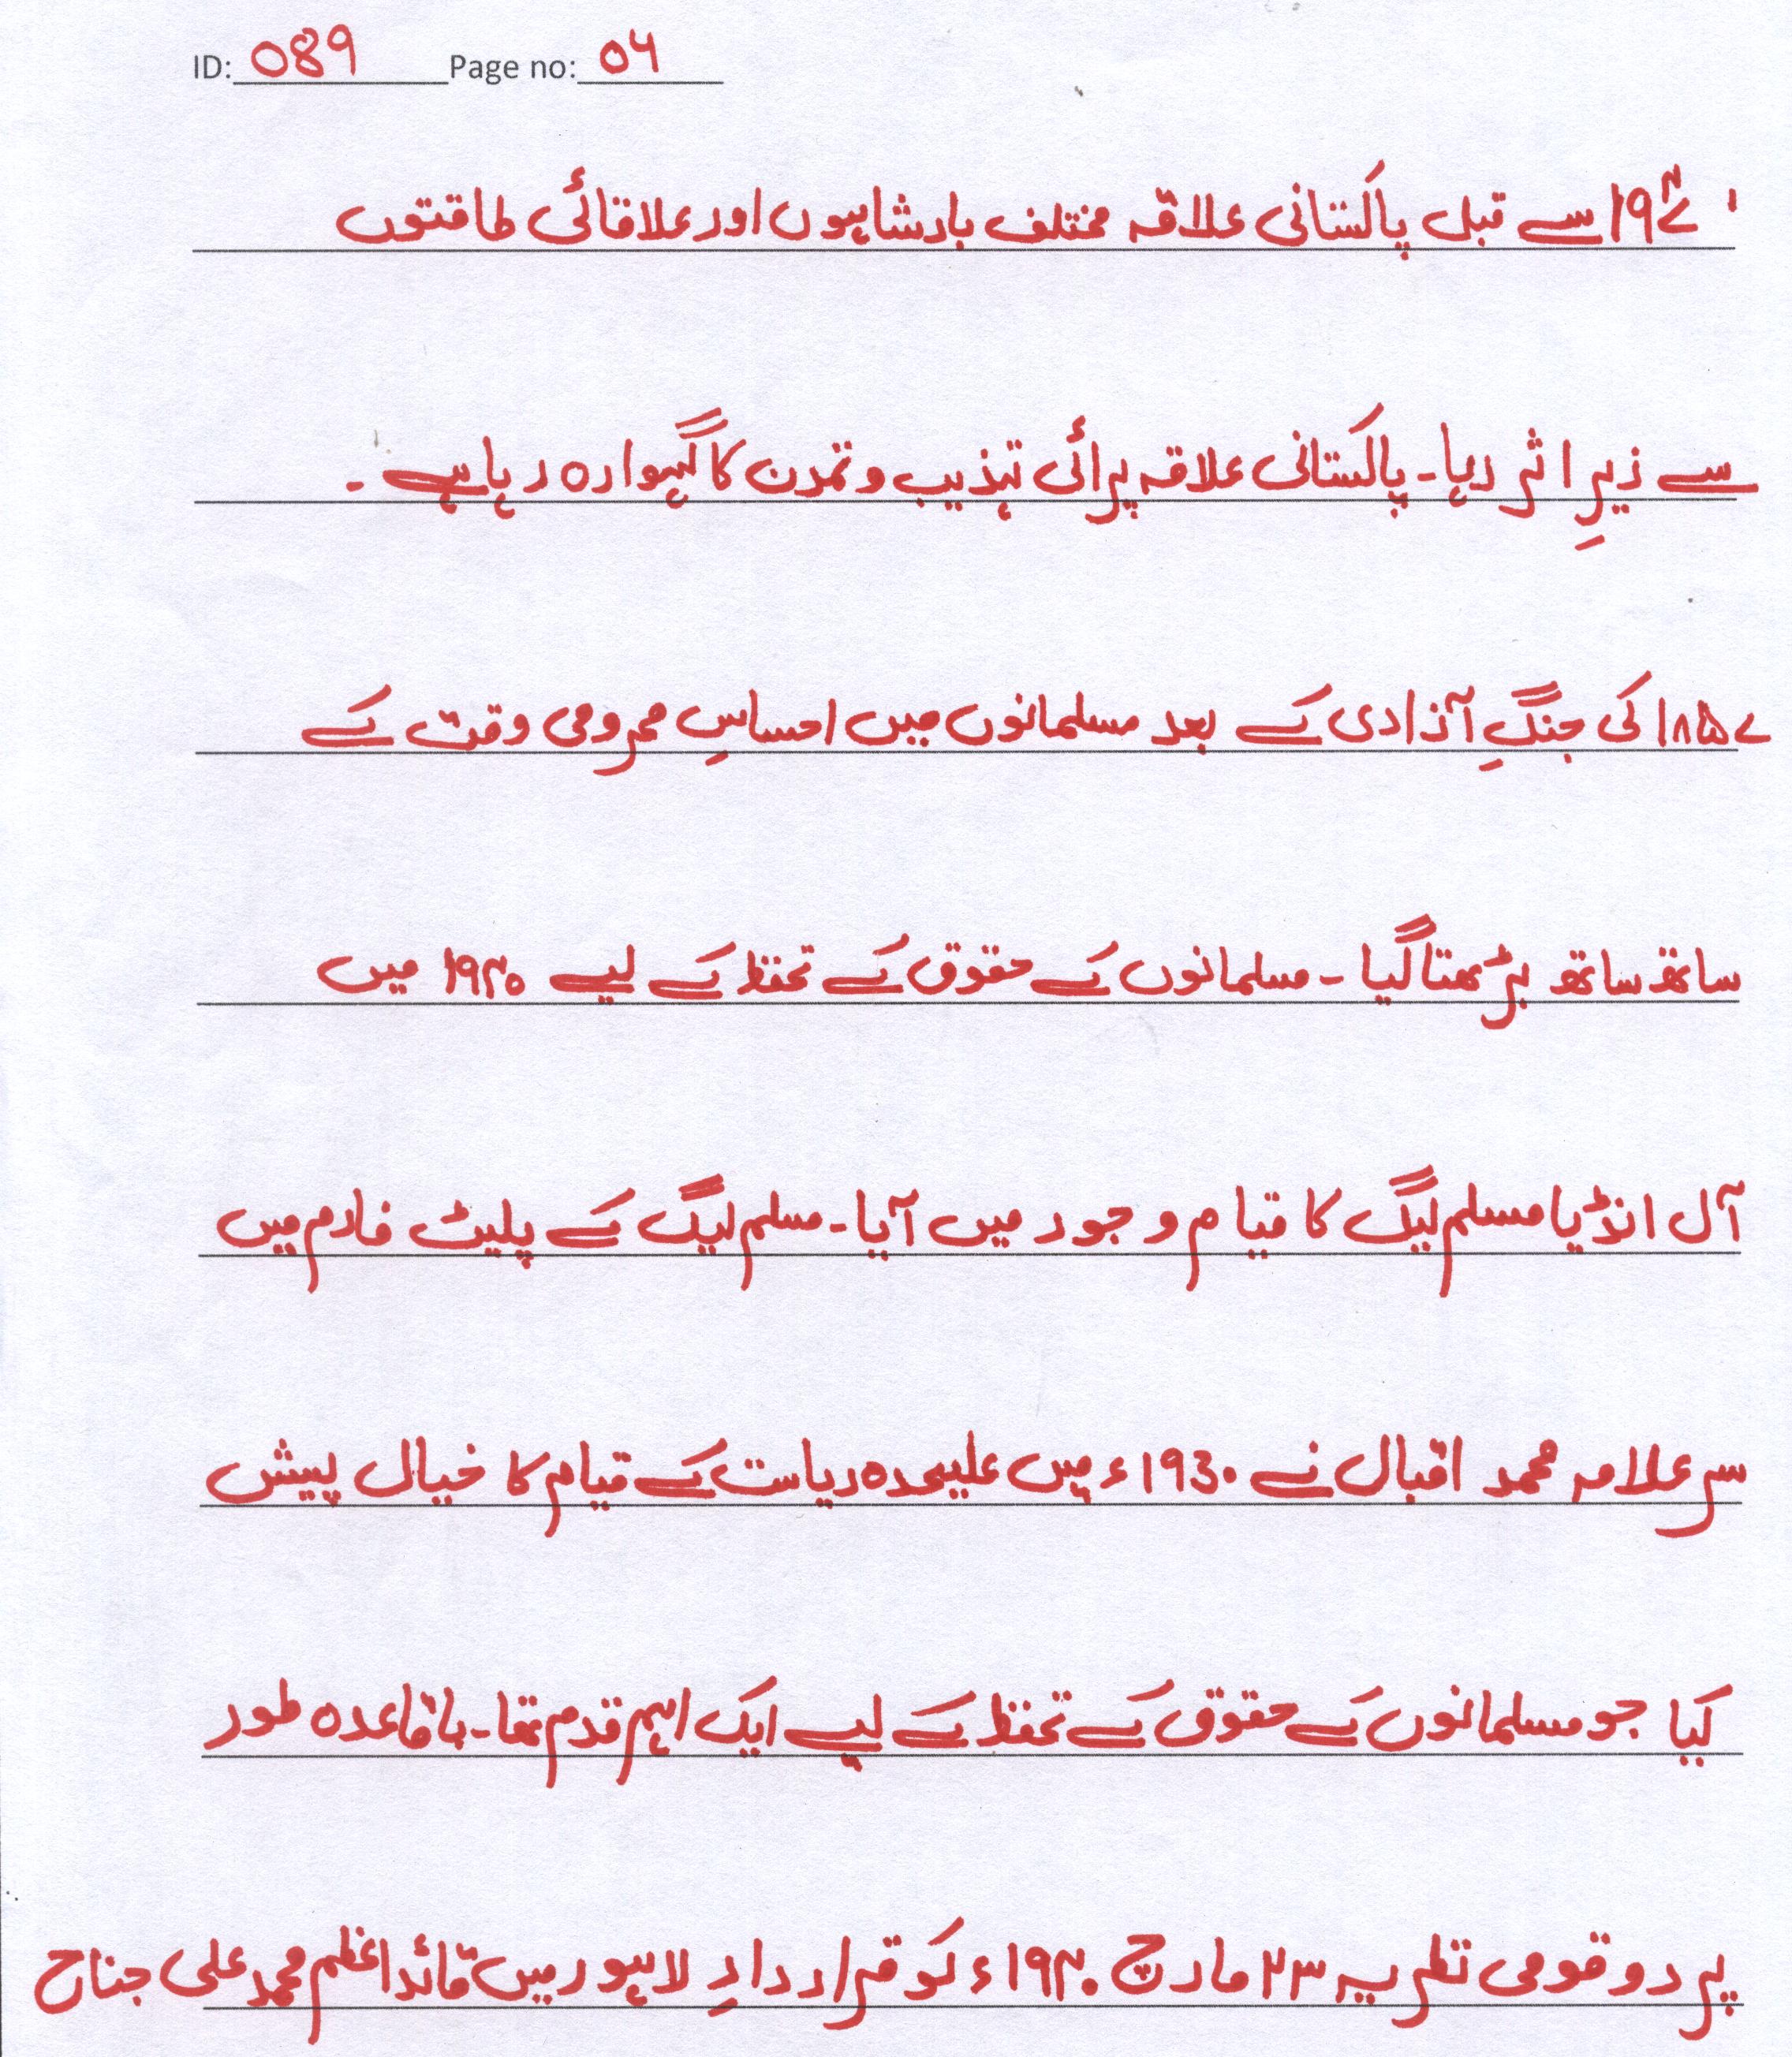 ID: 089 Page no: 04
۱۹۴۷ سے قبل پاکستانی علاقہ مختلف بادشاہوں اور علاقائی طاقتوں
سے زیرِ اثر رہا۔ پاکستانی علاقہ پرائی تہذیب و تمدن کا گہوارہ رہا ہے ۔
۱۸۵۷ کی جنگِ آزادی کے بعد مسلمانوں میں احساسِ محرومی وقت کے
ساتھ ساتھ بڑھتا گیا ۔ مسلمانوں کے حقوق کے تحفظ کے لیے ۱۹۴۰ میں
آل انڈیا مسلم لیگ کا قیام وجود میں آیا۔ مسلم لیگ کے پلیٹ فارم میں
سر علامہ محمد اقبال نے ۱۹3۰ء میں علیحدہ ریاست کے قیام کا خیال پیش
کیا جو مسلمانوں کے حقوق کے تحفظ کے لیے ایک اہم قدم تھا۔ باقاعدہ طور
پر دو قومی نظریہ ۲۳ مارچ ۱۹۴۰ء کو قرار دادِ لاہور میں قائداعظم محمد علی جناح